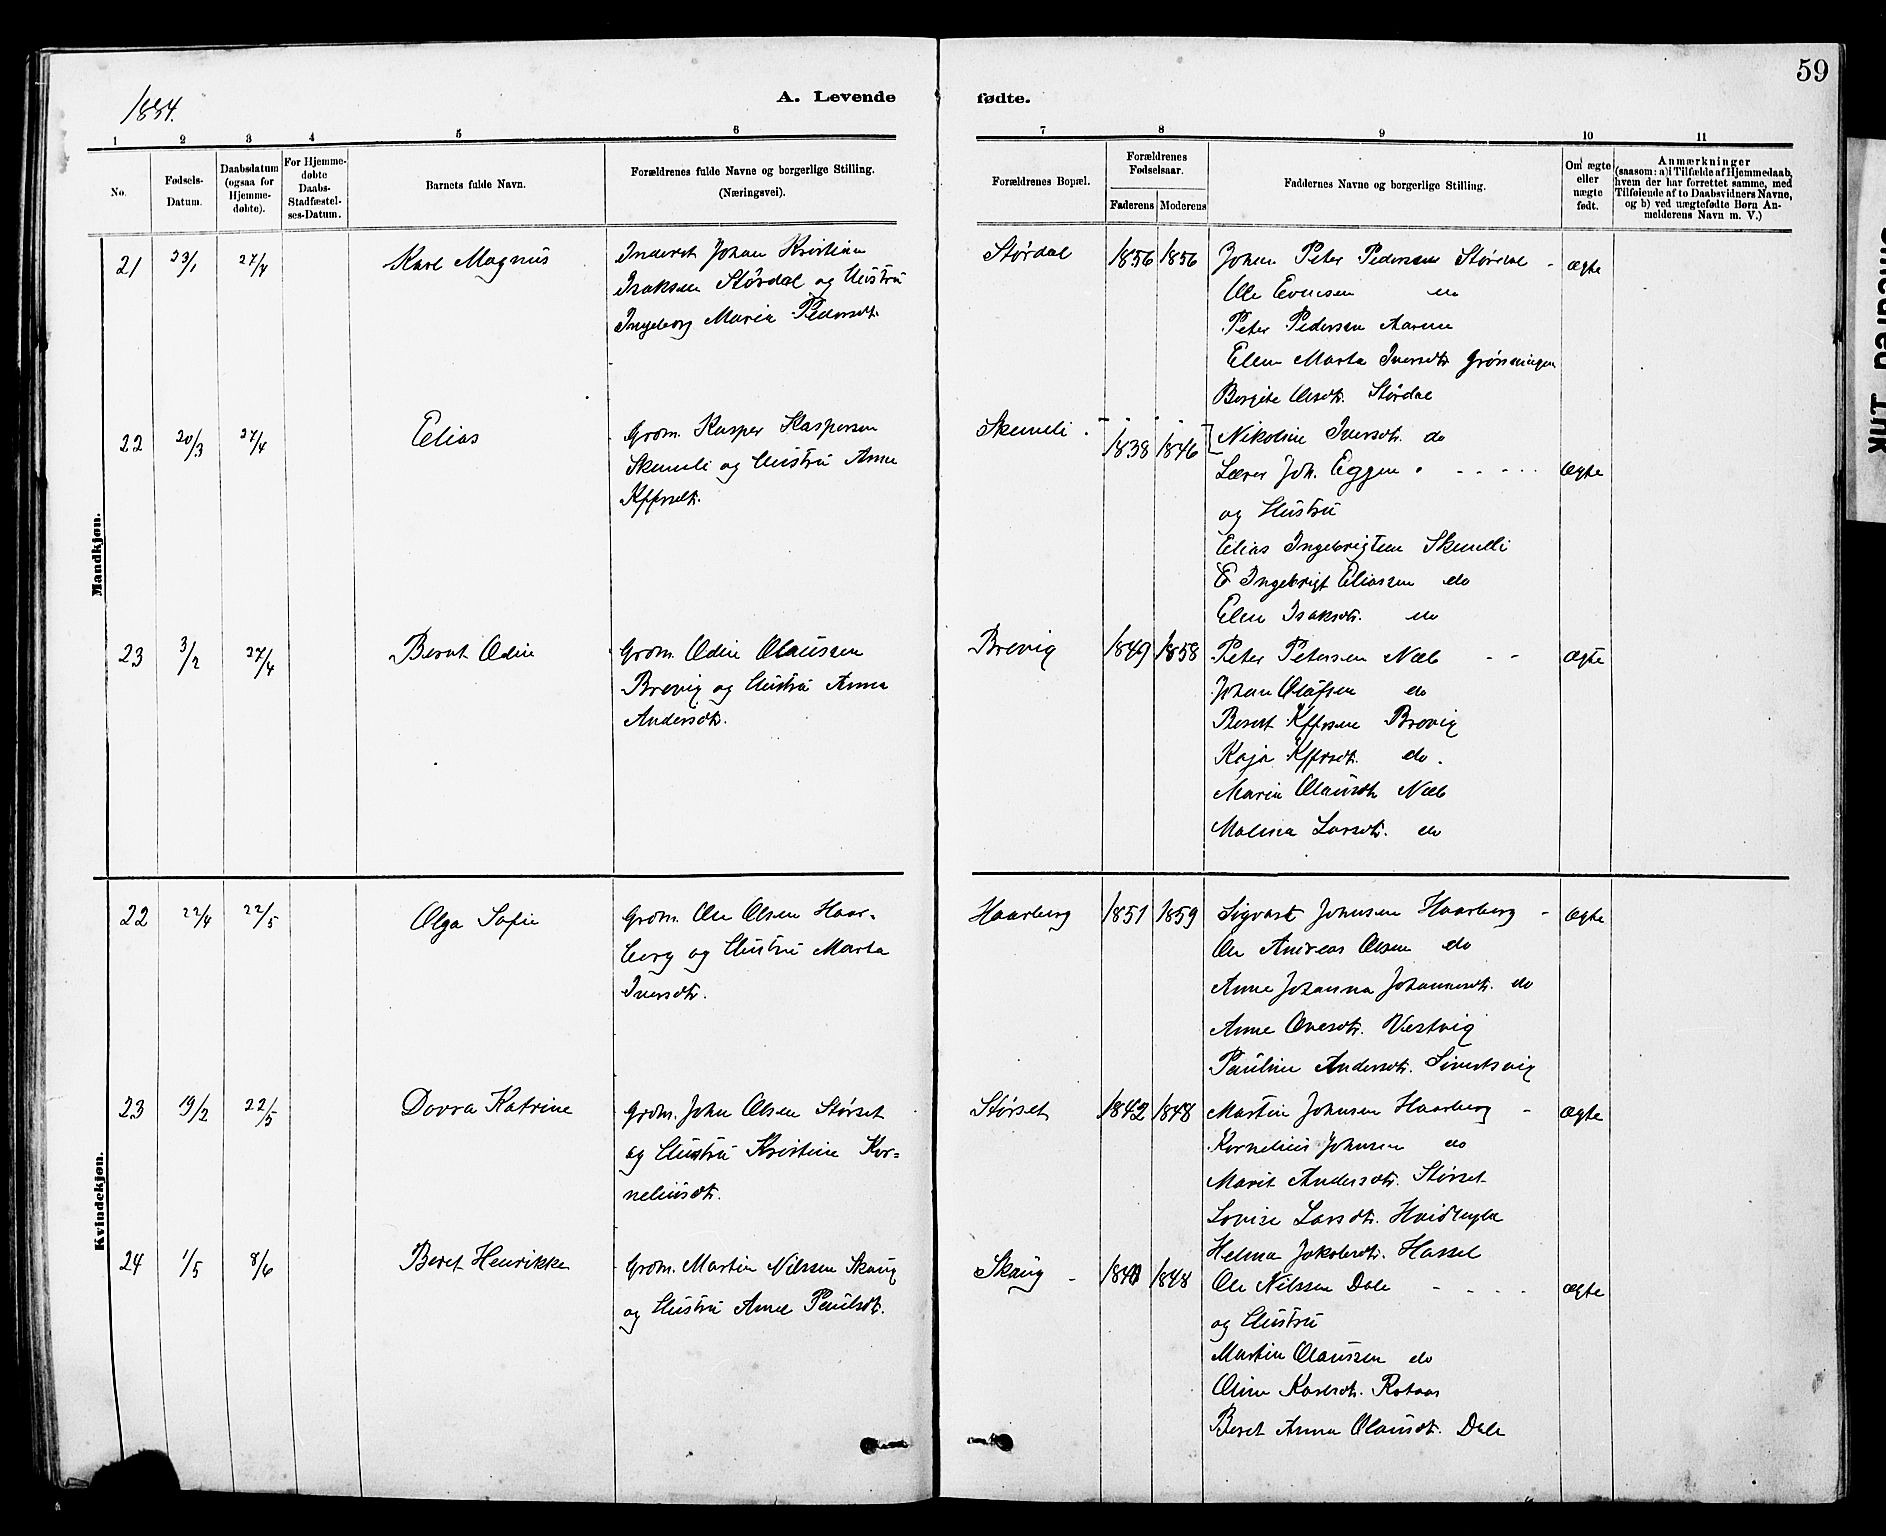 59
1884.
A. Levende fødte.
1 2 3 4 5 6 7 8 9 10 11
No.
Fødsels-
Datum.
Daabsdatum
(ogsaa for
Hjemme-
døbte).
For Hjemme-
døbte
Daabs-
Stadfæstel-
ses-Datum.
Barnets fulde Navn.
Forældrenes fulde Navne og borgerlige Stilling.
(Næringsvei).
Forældrenes Bopæl.
Forældrenes
Fødselsaar.
Faderens Moderens
Faddernes Navne og borgerlige Stilling.
Om ægte
eller
uægte
født.
Anmærkninger
(saasom: a) i Tilfælde af Hjemmedaab,
hvem der har forrettet samme, med
Tilføiende af to Daabsvidners Navne,
og b) ved uægtefødte Børn An-
melderens Navn m. V.)
Mandkjøn.
21 23/1 27/4 Karl Magnus
Inderst Johan Kristian
Isaksen Størdal og Hustru
Ingeborg Maria Pedersdt.
Størdal 1856 1856
Johan Peter Pedersen Størdal - ægte
Ole Evensen do
Peter Pedersen Aarne
Ellen Marta Iversdt. Grønningen
Borgite Olsdt. Størdal
22 20/3 27/4 Elias
Grdm. Kasper Kaspersen
Skemeli og Hustru Anne
Kffrsdt.
Skemeli 1838 1846
Nikoline Iversdt. do
Lærer Joh. Eggen - - - - ægte
og Hustru
Elias Ingebrigtsen Skemelli
E Ingebrigt Eliassen do
Elen Isaksdt. do
23 3/2 27/4 Bernt Odin
Grdm. Odin Olaussen
Brevig og Hustru Anna
Andersdt.
Brevig 1849 1858
Peter Petersen Næb - - ægte
Johan Olafsen do
Bernt Kffrsen Brevig
Kaja Kffrsdt. do.
Marie Olausdt. Næb
Malina Larsdt. do
Kvindekjøn.
22 22/4 22/5 Olga Sofie
Grdm. Ole Olsen Haar-
berg og Hustru Marta
Iversdt.
Haarberg 1851 1859
Sigvart Johnsen Haarberg - ægte
Ole Andreas Olsen do
Anne Johanna Johannesdt. do
Anne Ovesdt. Vestvig
Pauline Andersdt. Sivertsvig
23 19/2 22/5 Dorra Katrine
Grdm. John Olsen Størset
og Hustru Kristine Kor-
neliusdt.
Størset 1842 1848
Martin Johnsen Haarberg - ægte
Kornelius Johnsen do
Marit Andersdt. Størset
Lovise Larsdt.
Helma Jakobsdt. Hassel
24 1/5 8/6 Beret Henrikke
Grdm. Martin Nilssen Skaug
og Hustru Anne Paulsdt.
Skaug - 1848
Ole Nilssen Dale - - - - ægte
og Hustru
Martin Olaussen do
Oline Karlsdt. Rataas
Beret Anna Olausdt. Dale